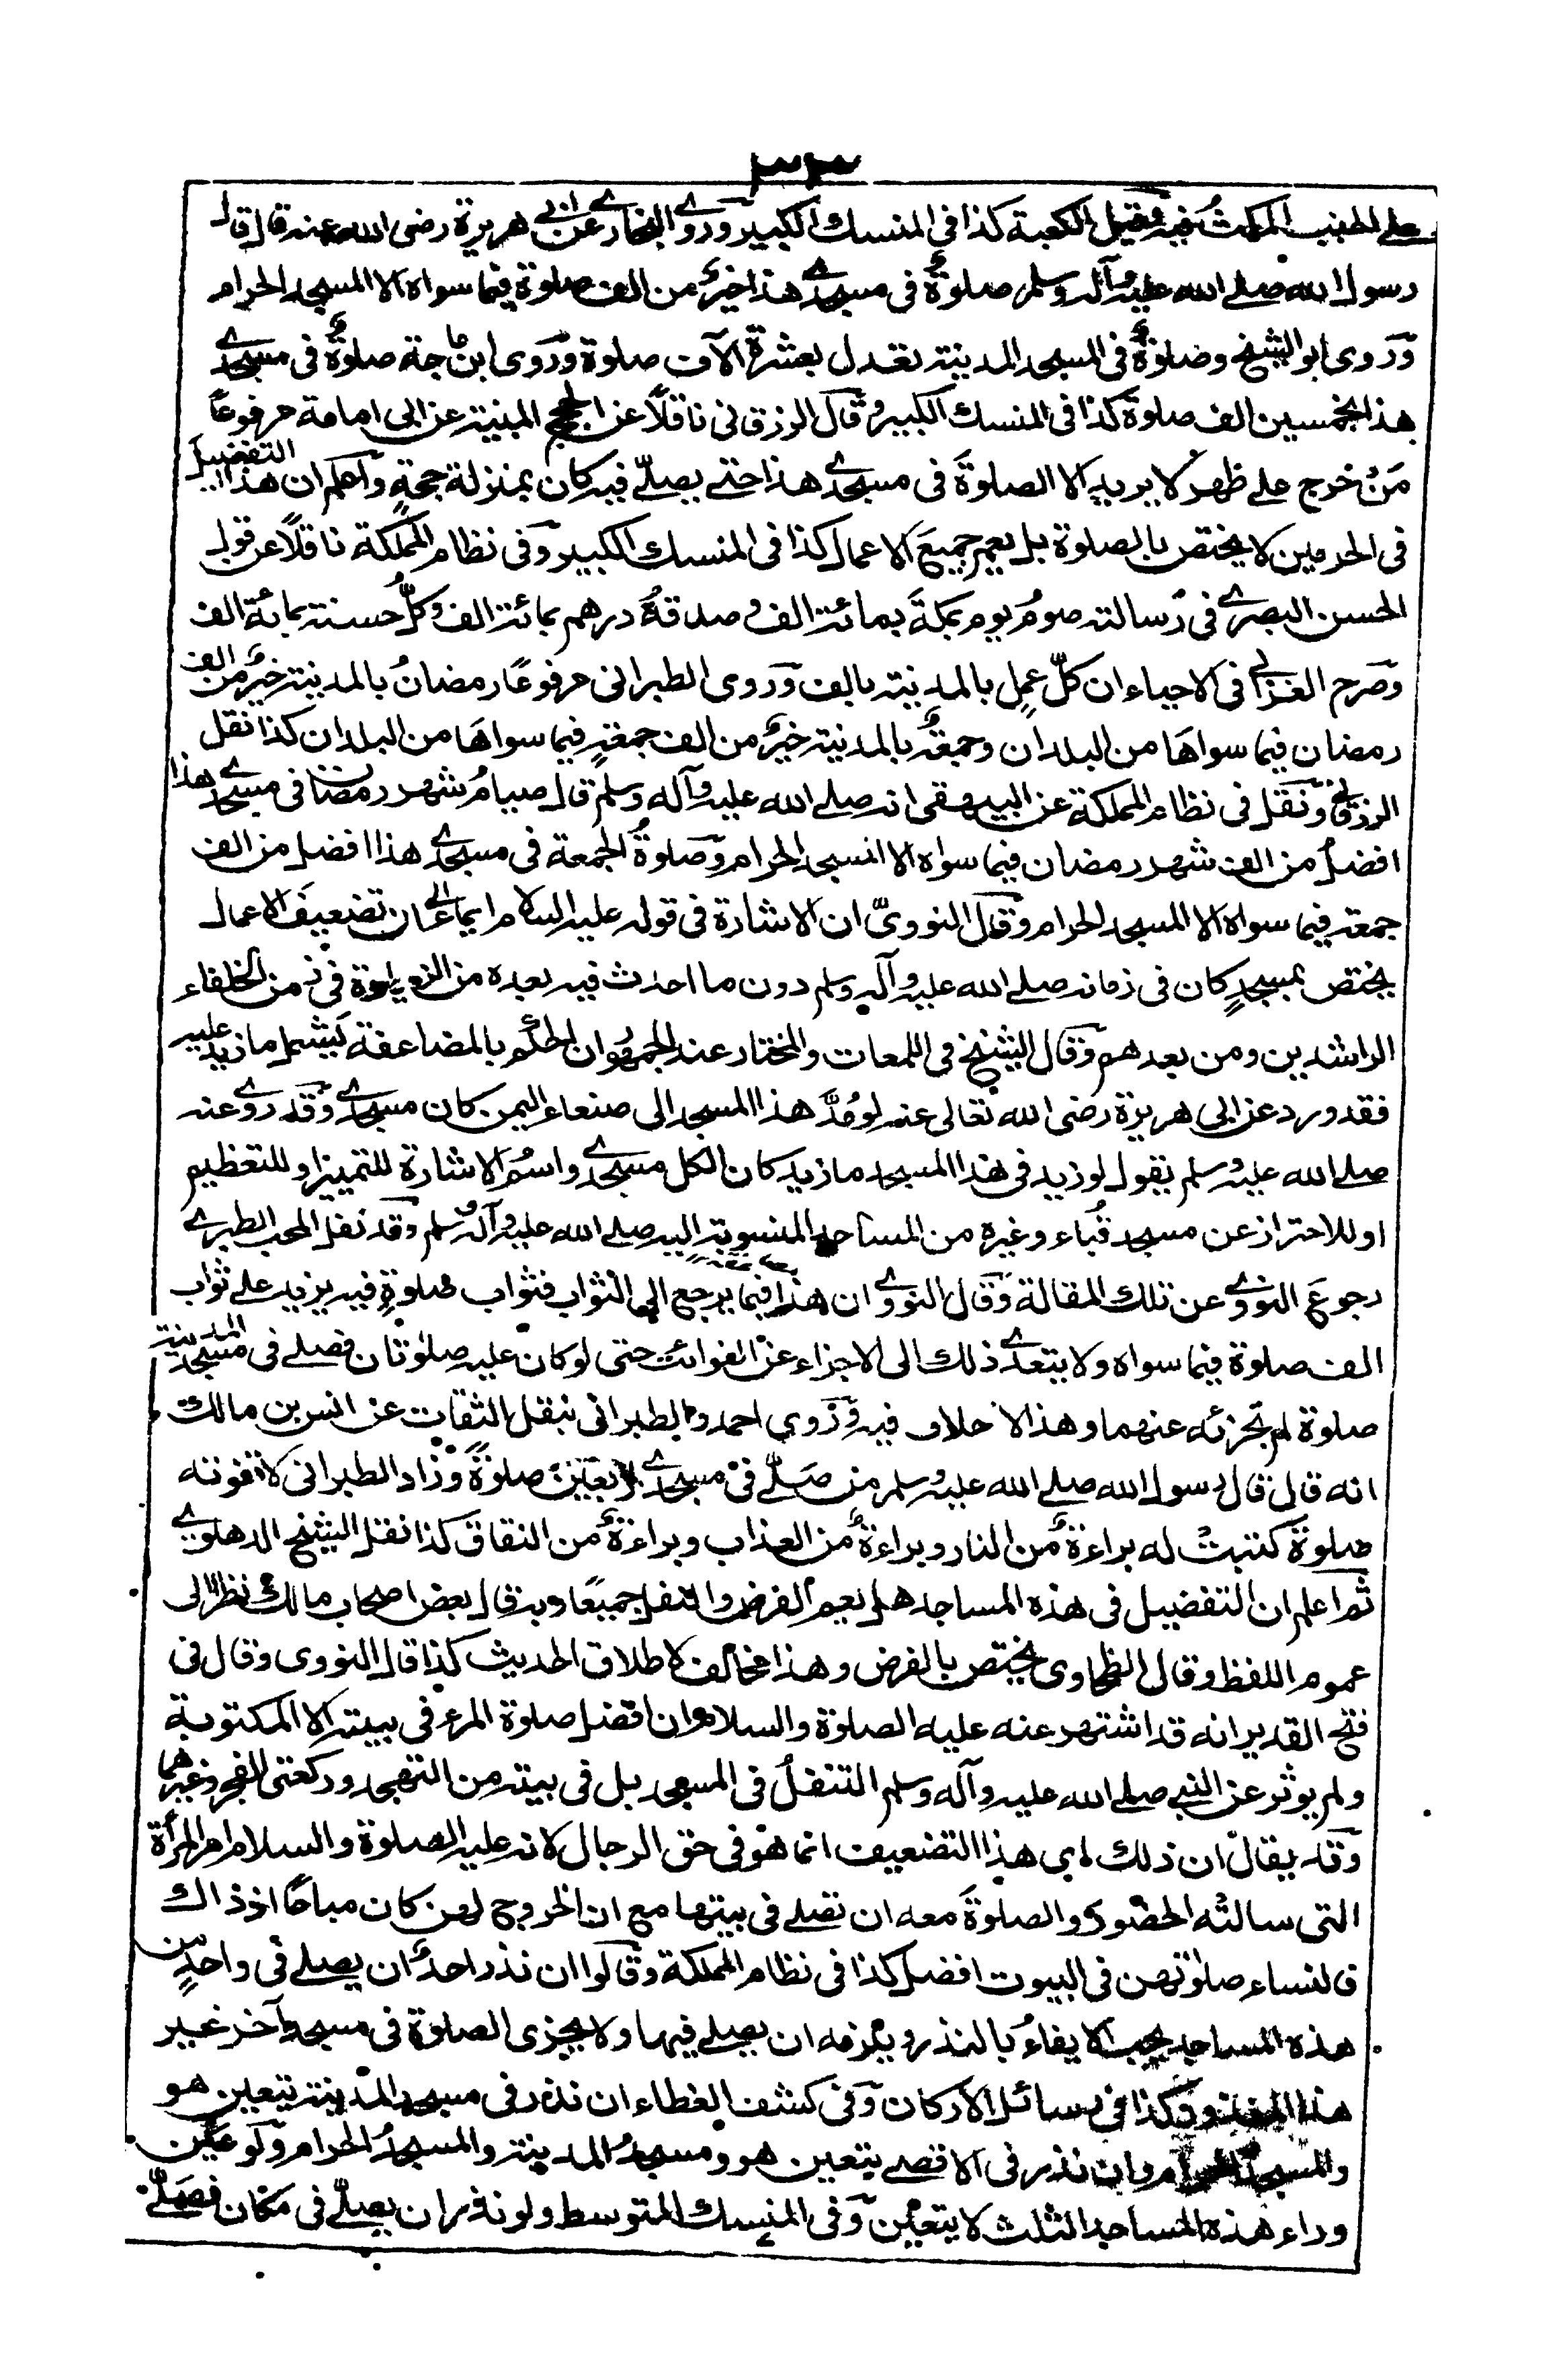 ٣٣
على المكث فيه وقيل الكعبة كذا فى المنسك الكبير وروى البخارى عن ابى هريرة رضى الله عنه قال قال
رسول الله صلى الله عليه وآله وسلم صلوةٌ فى مسجدى هذا خيرٌ من الف صلوة فيما سواه الا المسجد الحرام
وروى ابو الشيخ وصلوةٌ فى المسجد المدينة تعدل بعشرة الآف صلوة وروى ابن ماجة صلوةٌ فى مسجدى
هذا بخمسين الف صلوة كذا فى المنسك الكبير وقال الزرقانى ناقلاً عن الحجج المبنية عن ابى امامة مرفوعاً
مَنْ خرج على طهر لا يريد الا الصلوةَ فى مسجدى هذا حتى يصلّى فيه كان بمنزلة حجةٍ واعلم ان هذا التفضيل
فى الحرمين لا يختص بالصلوة بل يعم جميعَ الاعمال كذا فى المنسك الكبير وفى نظام المملكة ناقلاً عن قول
الحسن البصرى فى رسالته صومُ يوم بمكةَ بمائة الف وصدقةُ درهم بمائة الف وكلُّ حسنة بمائة الف
وصرح الغزالى فى الاحياء ان كلّ عملٍ بالمدينة بالف وروى الطبرانى مرفوعًا رمضانُ بالمدينة خيرٌ من الف
رمضان فيما سواهَا من البلدان وجمعةٌ بالمدينة خيرٌ من الف جمعةٍ فيما سواهَا من البلدان كذا نقل
الزرقانى ونقل فى نظام المملكة عن البيهقى انه صلى الله عليه وآله وسلم قال صيامُ شهر رمضان فى مسجدى هذا
افضلُ من الف شهر رمضان فيما سواه الا المسجد الحرام وصلوةُ الجمعة فى مسجدى هذا افضل من الف
جمعة فيما سواه الا المسجد الحرام وقال النووىّ ان الاشارة فى قوله عليه السلام ايماء الى ان تضعيف الاعمال
يختص بمسجدٍ كان فى زمانه صلى الله عليه وآله وسلم دون ما احدث فيه بعده من الزيادة فى زمن الخلفاء
الراشدين ومن بعدهم وقال الشيخ فى اللمعات والمختار عند الجمهور ان الحكم بالمضاعفة يشمل ما زيد عليه
فقد ورد عن ابى هريرة رضى الله تعالى عنه لو مُدَّ هذا المسجد الى صنعاء اليمن كان مسجدى وقد روى عنه
صلى الله عليه وسلم يقول لو زيد فى هذا المسجد ما زيد كان الكل مسجدى واسمُ الاشارة للتميز او للتعظيم
او للاحتراز عن مسجد قُباء وغيره من المساجد المنسوبة اليه صلى الله عليه وآله وسلم وقد نقل المحب الطبرى
رجوعَ النووى عن تلك المقالة وقال النووى ان هذا فيما يرجع الى الثواب فثواب صلوةٍ فيه يزيد على ثواب
الف صلوة فيما سواه ولا يتعدى ذلك الى الاجزاء عن الفوائت حتى لو كان عليه صلوٰتان فصلى فى مسجد المدينة
صلوة لم تجزئه عنهما وهذا لا خلاف فيه وروى احمد والطبرانى بنقل الثقات عن انس بن مالك
انه قال قال رسول الله صلى الله عليه وسلم من صَلّى فى مسجدى اربعين صلوةً وزاد الطبرانى لا تفوته
صلوةٌ كتبتْ له براءةٌ من النار وبراءةٌ من العذاب وبراءةٌ من النفاق كذا نقل الشيخ الدهلوى
ثم اعلم ان التفضيل فى هذه المساجد هل يعم الفرض والنفل جميعًا وبه قال بعض اصحاب مالك نظرًا الى
عموم اللفظ وقال الطحاوى يختص بالفرض وهذا مخالف لاطلاق الحديث كذا قال النووى وقال فى
فتح القدير انه قد اشتهر عنه عليه الصلوة والسلام وان افضل صلوة المرء فى بيته الا المكتوبة
ولم يوثر عن النبى صلى الله عليه وآله وسلم التنفلُ فى المسجد بل فى بيته من التهجد وركعتى الفجر وغيرهما
وقد يقال ان ذلك اى هذا التضعيف انما هو فى حق الرجال لانه عليه الصلوة والسلام امر المرأة
التى سالته الحضور والصلوةَ معه ان تصلى فى بيتها مع ان الخروج لهن كان مباحًا اذ ذاك
فالنساء صلوٰتهن فى البيوت افضل كذا فى نظام المملكة وقالوا ان نذر احدٌ ان يصلى فى واحدٍ من
هذه المساجد يجب الايفاءُ بالنذر ويلزمه ان يصلى فيها ولا يجزى الصلوة فى مسجد آخر غير
هذا كذا فى رسائل الاركان وفى كشف الغطاء ان نذر فى مسجد المدينة تتعين هو
والمسجد الحرام وان نذر فى الاقصى يتعين هو ومسجدُ المدينة والمسجدُ الحرام ولو عين
وراء هذه المساجد الثلث لا يتعين وفى المنسك المتوسط ولو نذر ان يصلّى فى مكان فصَلّى